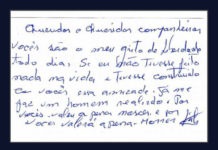 Queridos e Queridas companheiras
vocês são o meu grito de liberdade
todo dia. Se eu não Tivesse feito
nada na vida e Tivesse construido
com vocês essa amizade já me
faz um homem realizado. Por
vocês valeu a pena nascer e por
vocês valerá a pena morrer